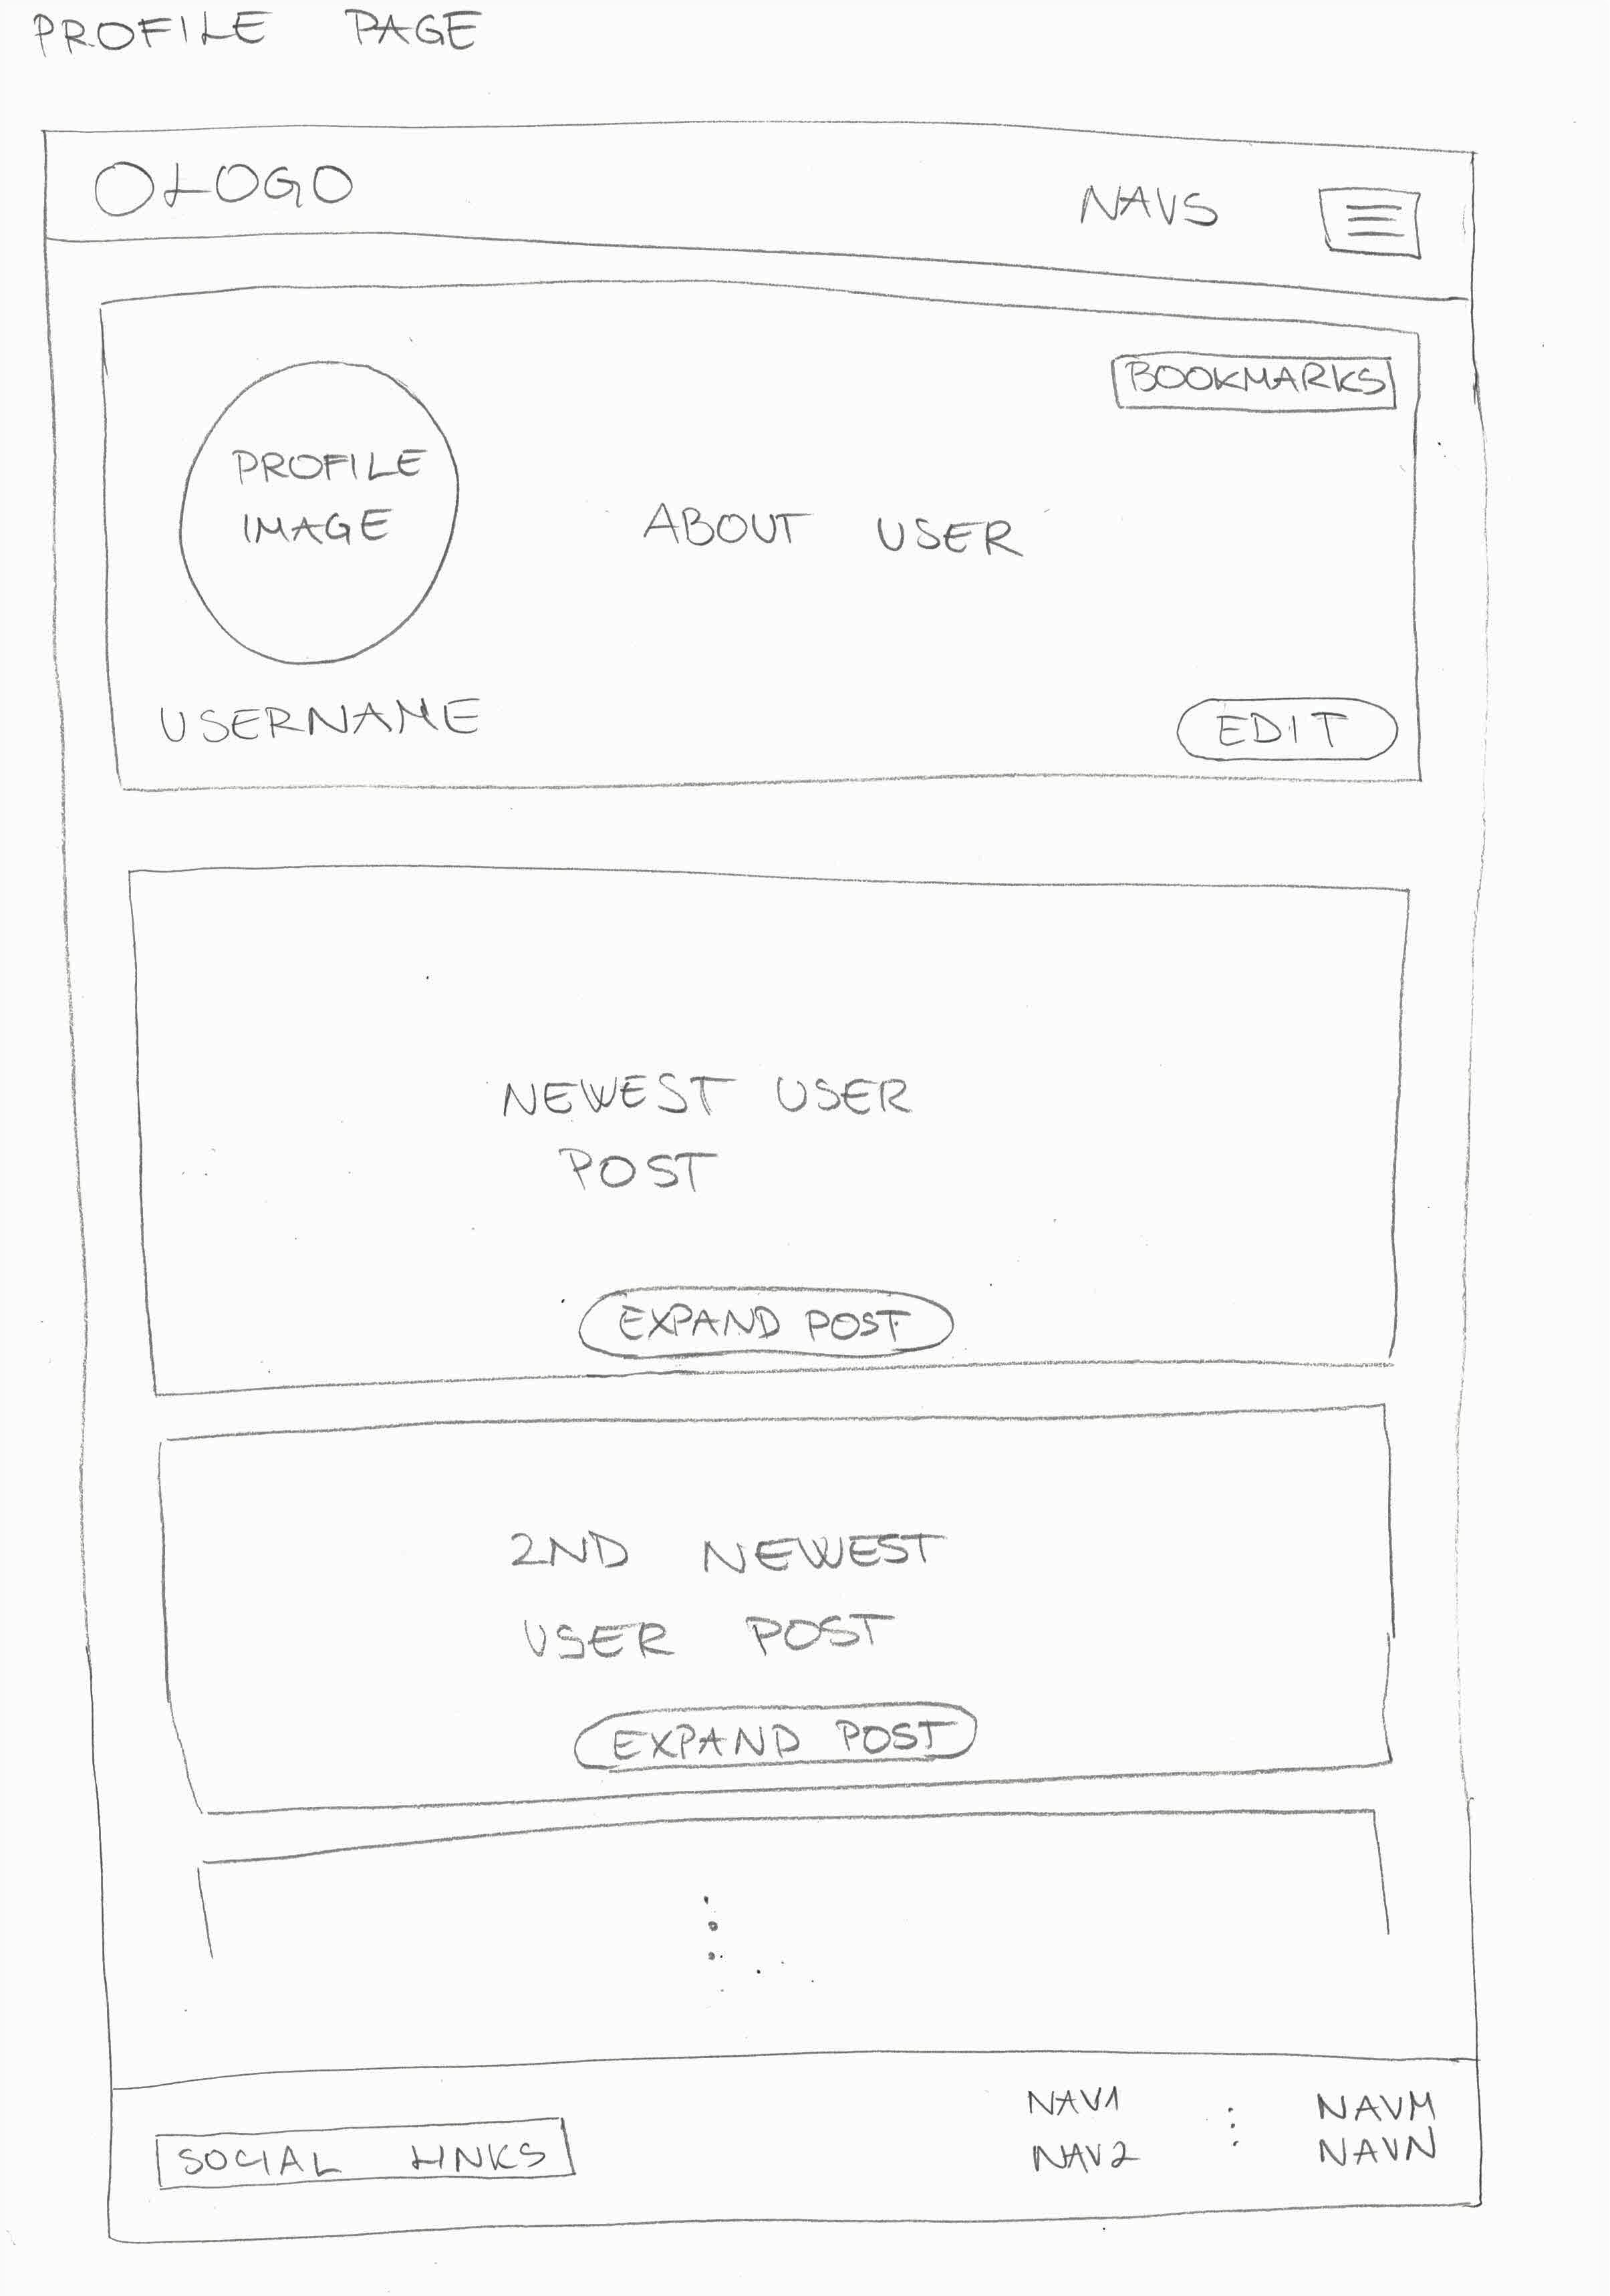 PROFILE PAGE
LOGO
NAVS
BOOKMARKS
PROFILE
IMAGE
ABOUT USER
USERNAME
EDIT
NEWEST USER
POST
EXPAND POST
2ND NEWEST
USER POST
EXPAND POST
NAV1
NAVM
SOCIAL LINKS
NAV2
NAVN